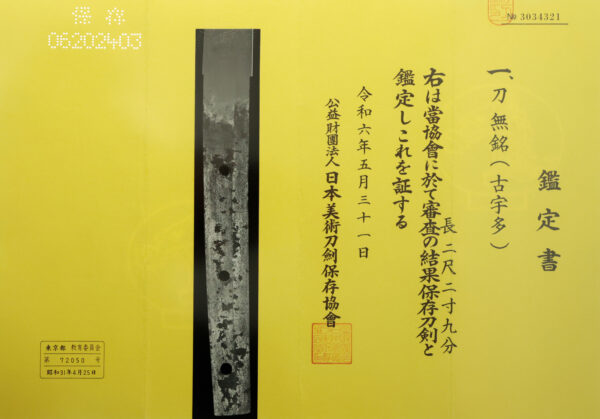 鑑定書
一、刀 無銘(古宇多)
長 二尺二寸九分
右は當協會に於て審査の結果保存刀剣と
鑑定しこれを証する
令和六年五月三十一日
公益財團法人日本美術刀劍保存協會
№ 3034321
保存
06202403
東京都 教育委員会
第 72050 号
昭和31年4月25日